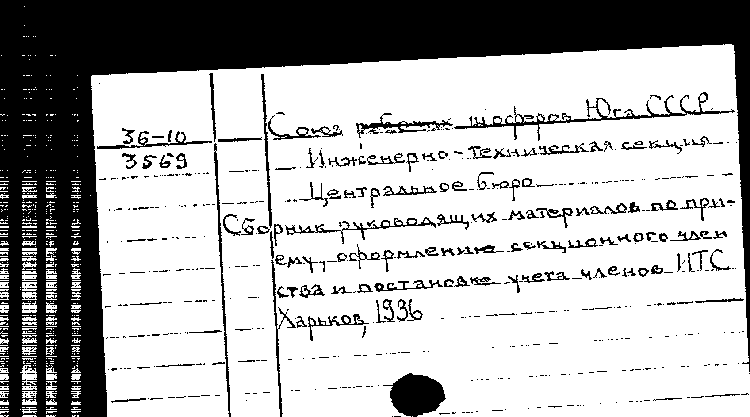 36-10
3569
Союз рабочих шоферов Юга СССР
Инженерно-техническая секция
Центральное бюро
Сборник руководящих материалов по при-
ему, оформлению секционного член
ства и постановке учета членов ИТС
Харьков, 1936